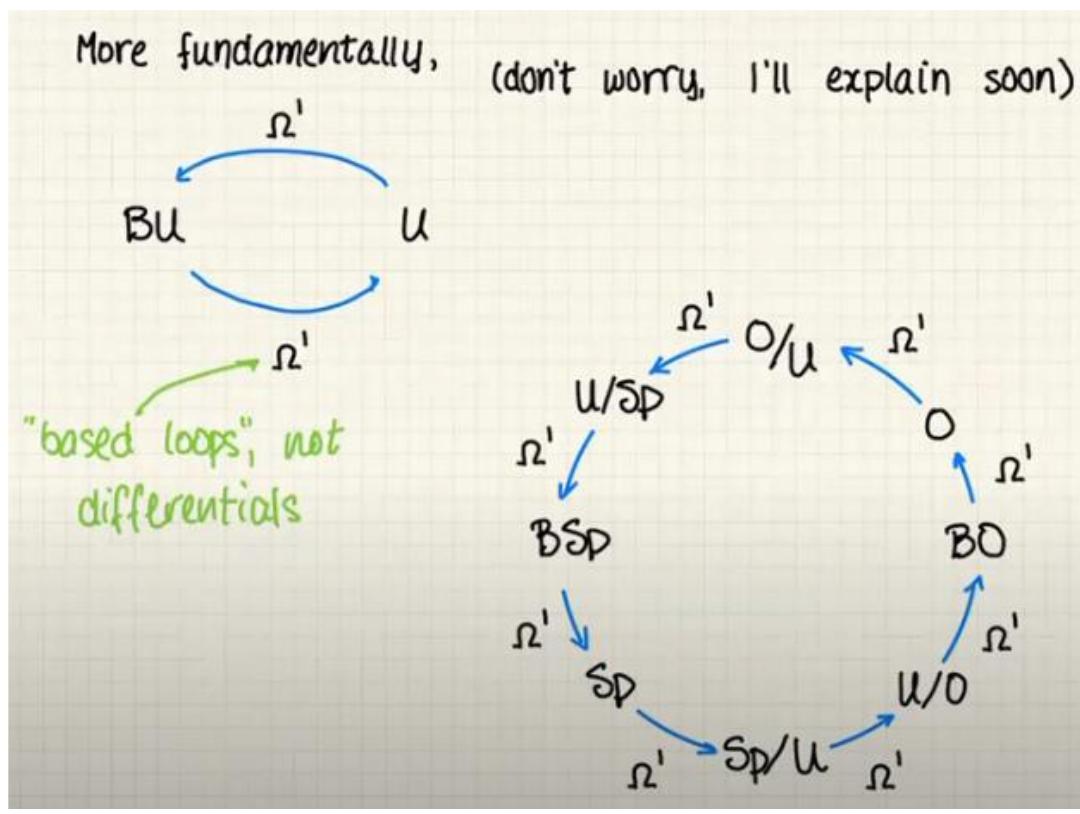 More fundamentally,
(don't worry, I'll explain soon)
Ω'
BU
U
Ω'
"based loops", not
differentials
Ω'
O/U
Ω'
U/Sp
O
Ω'
Ω'
BSp
BO
Ω'
Ω'
Sp
U/O
Ω'
Sp/U
Ω'